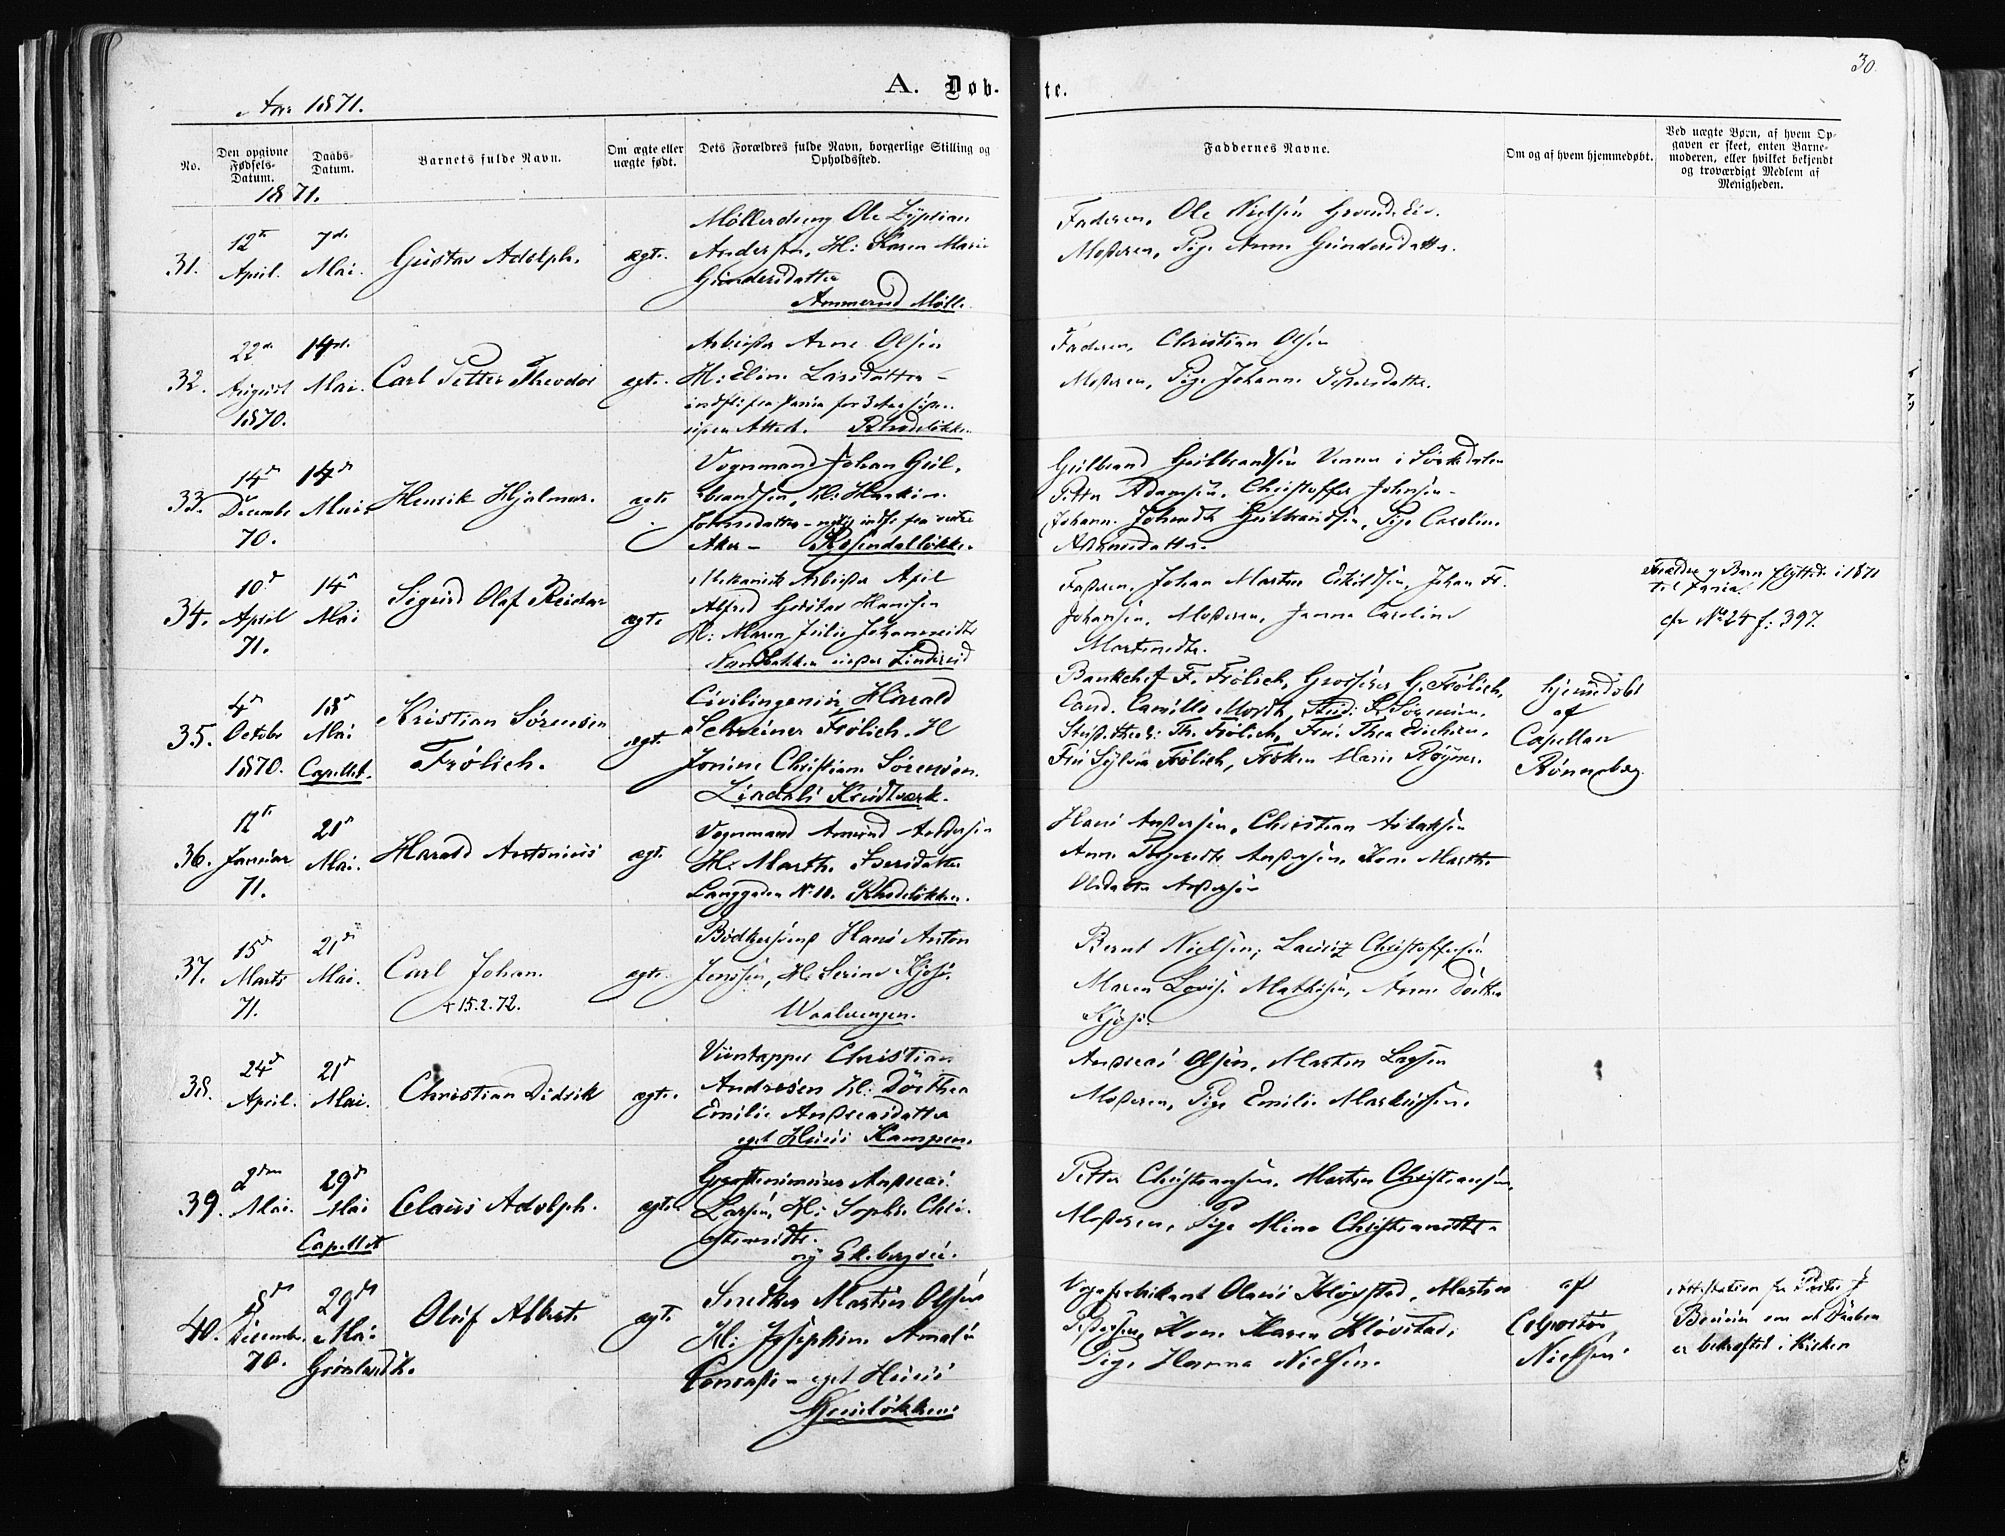 30.
Aar 1871.
A. Døb-te.
No.
Den opgivne Fødsels-Datum.
Daabs-Datum.
Barnets fulde Navn.
Om ægte eller uægte født.
Dets Forældres fulde Navn, borgerlige Stilling og Opholdssted.
Faddernes Navne.
Om og af hvem hjemmedøbt.
Ved uægte Børn, af hvem Op-
gaven er skeet, enten Barne-
moderen, eller hvilket bekjendt
og troværdigt Medlem af
Menigheden.
1871.
31.
12te April.
7de Mai.
Gustav Adolph.
ægte.
Møllerdreng Ole
Andersen, H: Karen Marie
Gundersdatter
Ammerud Mølle.
Faderen, Ole Nielsen
Moderen, Pige Anne Gundersdatter.
32.
22de August 1870.
14de Mai.
Carl Petter Theodor
ægte.
Arbeider Arne Olsen
H: Eline Larsdatter
Attest. Rhodeløkken
Faderen, Christian Olsen
Moderen, Pige Johanne Pedersdatter.
33.
14de Decembr 70.
14de Mai
Henrik Hjalmar.
ægte
Vognmand Johan Gul-
brandsen, H:
Johnsdatter
Aker - Rosendalløkken.
Gulbrand Gulbrandsen i Sørkedalen
Petter Adamsen, Christoffer Johnsen
Johanne Gulbrandsen, Pige Caroline
34.
10de April 71.
14de Mai
Sigurd Olaf Reidar
ægte
Mekanisk Arbeider Axel
Alfred Gustav Hansen
H: Maren Julie Johannesdtr
under Linderud
Faderen, Johan Martin Eskildsen, Johan Fr.
Johansen, Moderen, Caroline
Martensdtr.
Forældre og Barn flyttede i 1871
til
cfr No 24 f: 397.
35.
4de Octobr 1870.
18de Mai Capellet.
Kristian Sørensen
Frølich.
ægte
Civilingeniør Harald
Schreiner Frølich. H
Jonine Christiane Sørensen.
Lindahls Krudtværk.
Bankchef F. Frølich, Grosserer G. Frølich,
Cand. Camillo Mordt, Stud: Sørensen,
Th. Frølich, Fru Thea Erichsen,
Fru Sylvia Frølich, Frøken Marie
hjemdøbt
af
Capellan
Rønneberg.
36.
17te Januar 71.
21de Mai.
Harald Antonius
ægte
Vognmand Amund Andersen
H: Marthe Iversdatter
Langgaden No 10. Rhodeløkken.
Hans Andersen, Christian
Anne Andersen, Kone Marthe
Olsdatter Andersen
37.
15de Marts 71.
21de Mai.
Carl Johan.
† 15.2.72.
ægte.
Bødkersvend Hans Anton
Jenssen, H: Serine
Vaalerengen.
Bernt Nielsen, Lauritz Christoffersen
Maren Lovise Mathisen, Anne Dorthea
38.
24de April.
21de Mai.
Christian Didrik
ægte.
Viintapper Christian
Andresen H: Dorthea
Emilie Andreasdatter
eget Huus Kampen.
Andreas Olsen, Martin
Moderen, Pige Emilie Markussen.
39.
2den Mai.
29de Mai Capellet
Claus Adolph.
ægte
Andreas
Larsen, H: Sophie Chri-
stensdtr.
ny Ekebergvei.
Petter Christiansen, Martin Christiansen,
Moderen, Pige Mina Christiansdtr
40.
8de Decembr 70.
29de Mai Grønlandsk.
Oluf Albert.
ægte
Snedker Martin Olsen
H: Josephine Amalie
eget Huus
Olaus Kløvstad, Martin
Pedersen, Kone Karen Kløvstad,
Pige Hanna Nielsen.
af
Colportør
Nielsen.
Attestation fra
om at Daaben
er bekræftet i Kirken